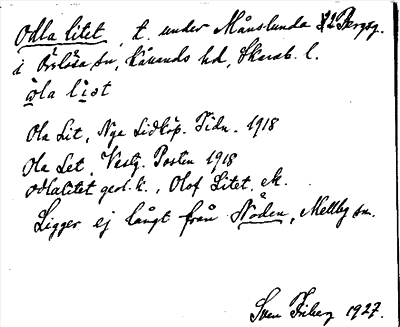 Odla litet, t. under Månslunda
i Örslösa sn, Kållands hd, Skarab. l.
ola list
Ola Lit, Nya Lidköp. Tidn. 1918
Ola Let, Vestg. Posten 1918
Odlalitet geol. k., Olof Litet, M.
Ligger ej långt från Nöden, Mellby sn.
Sven Friberg 1927.